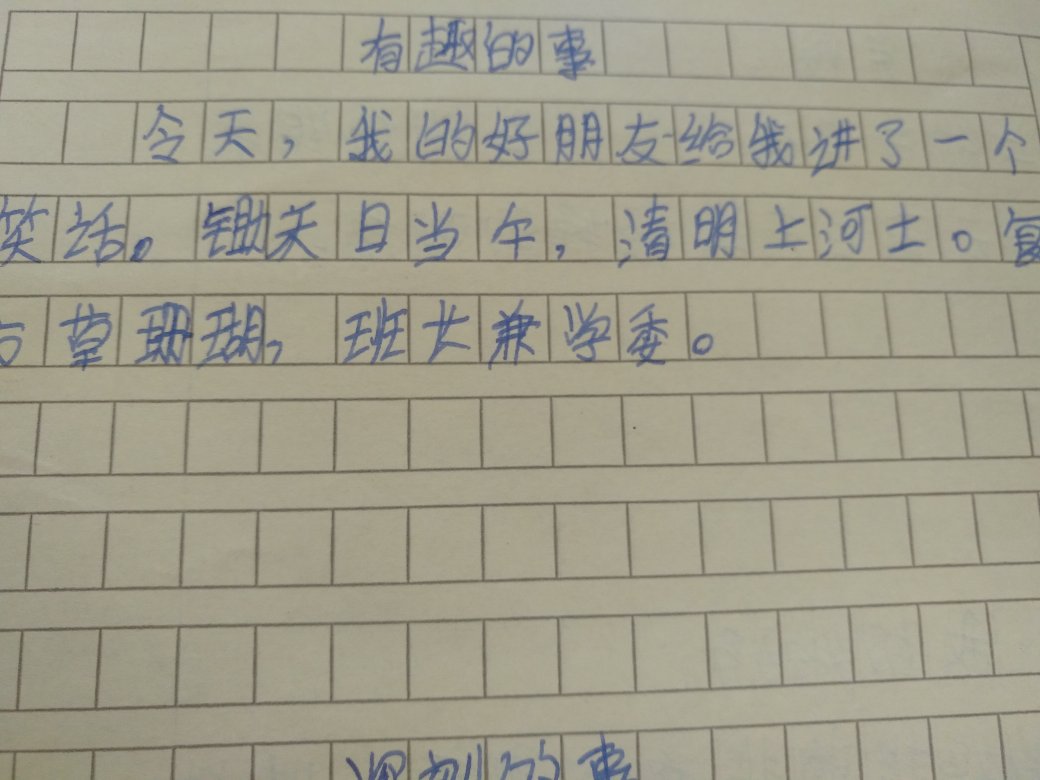 有趣的事
今天，我的好朋友给我进了一个
笑话。锄关日当午，清明上河土。复
方草珊瑚，班长兼学委。
深刻的事